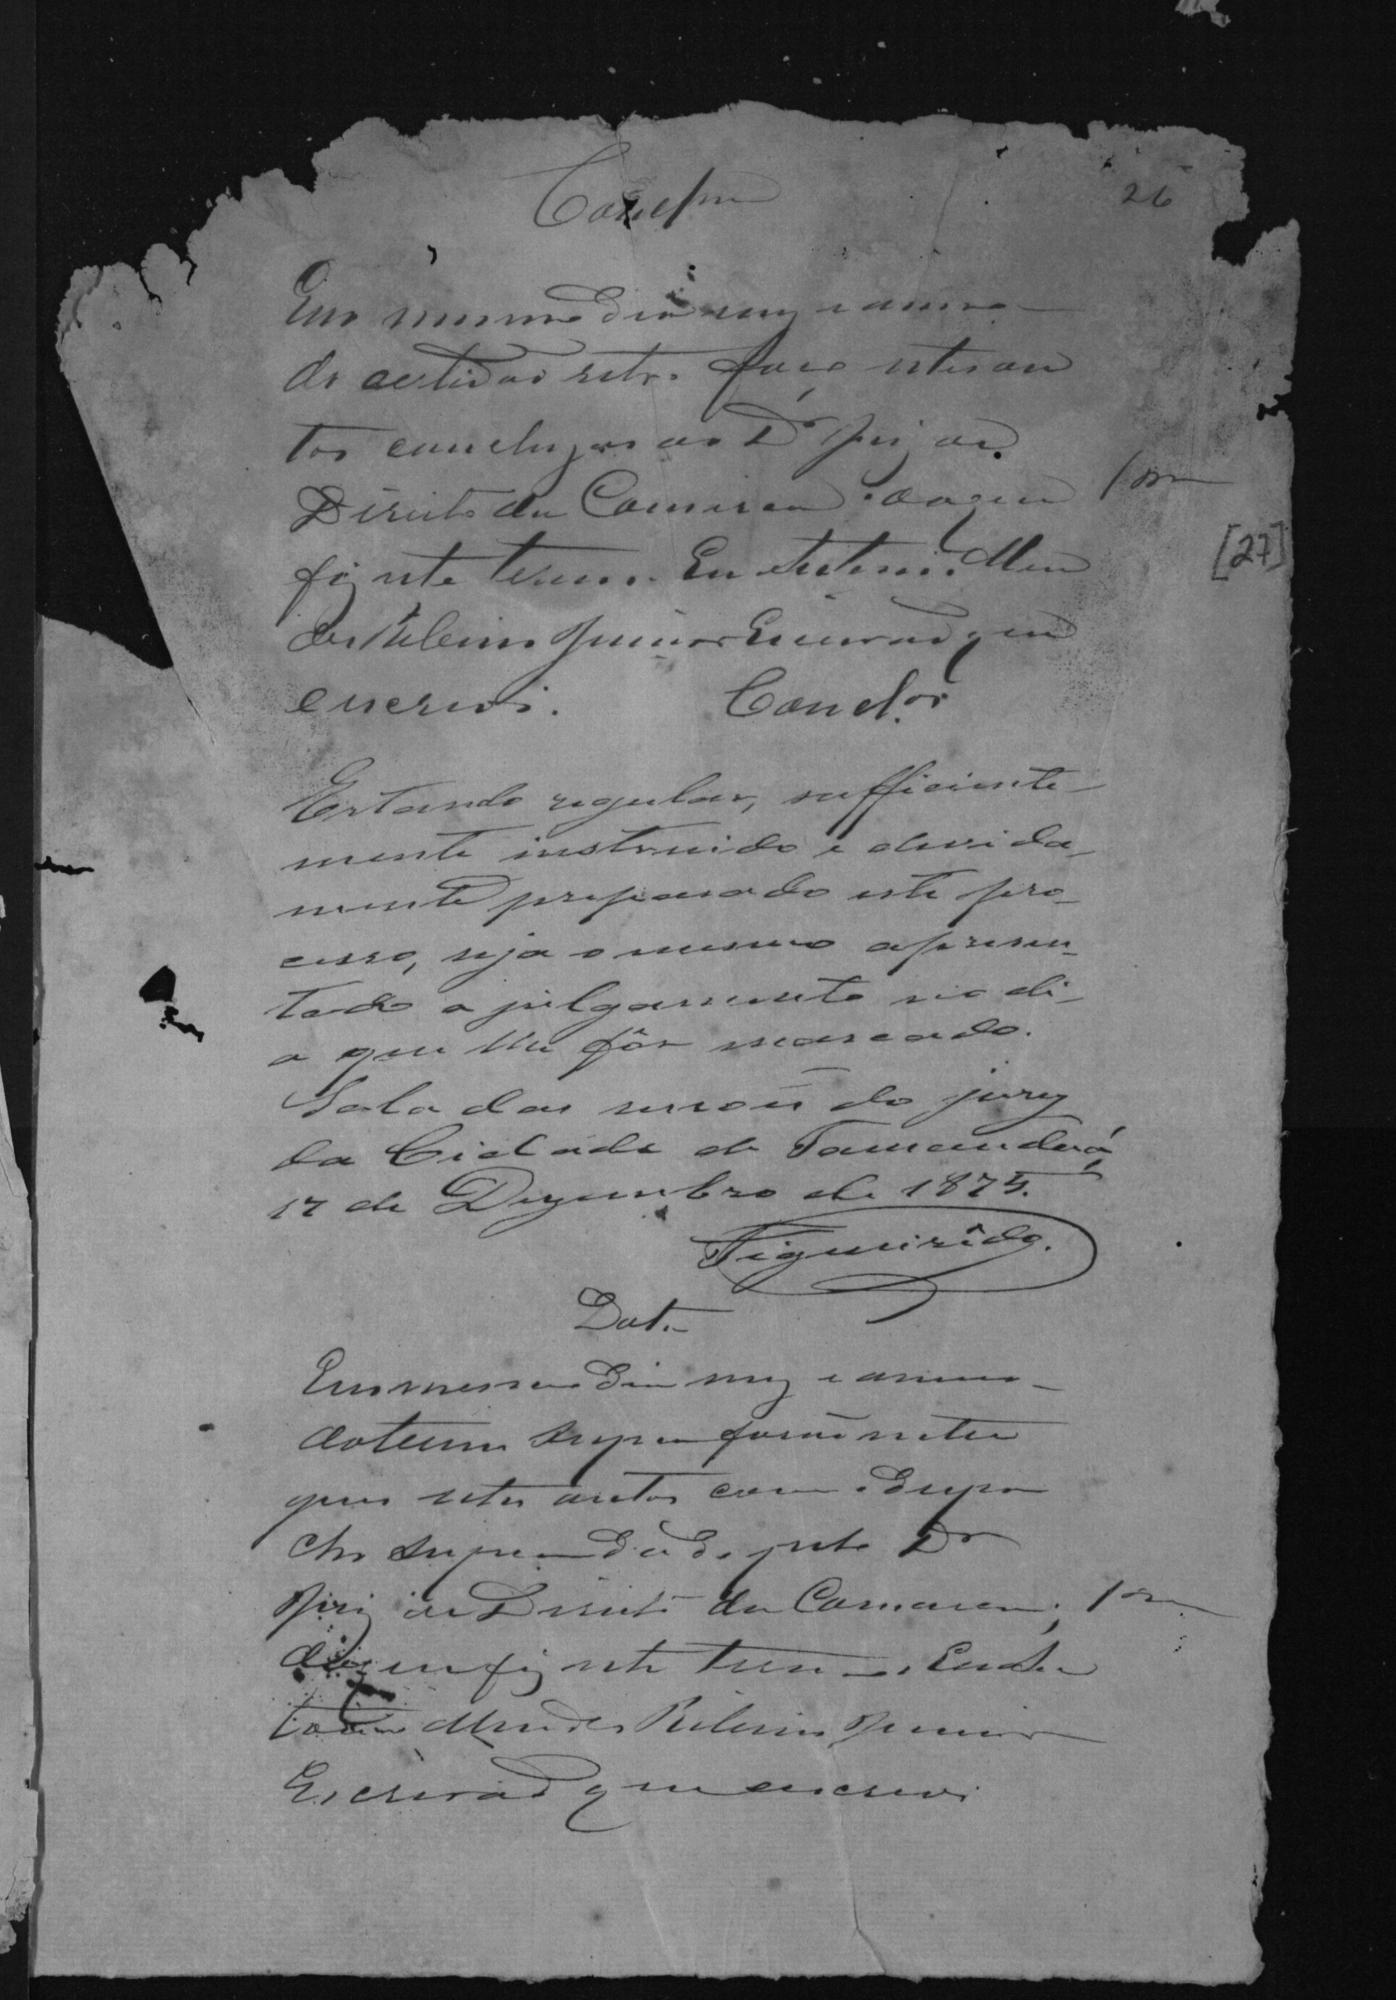 26
Em mesmo dia mez e anno
da certidão retro faço estes au
tos concluzos ao Dr Juiz de
Direito da Comarca do que
fiz este termo. Eu Antonio Men
des Ribeiro Junior Escrivão que
escrevi.
Concl.os
[27]
Estando regular, sufficiente-
mente instruido e devida-
mente preparado este pro-
cesso, seja o mesmo apresen-
tado a julgamento no di-
a que lhe fôr marcado.
Sala das sessões do jury
da Cidade de Tamanduá,
17 de Dezembro de 1875.
Figueirêdo.
Data
Em mesmo dia mez e anno
do termo supra forão entre
gues estes autos com o despa
cho supra dado pelo Dr
Juiz de Direito da Comarca;
do que fiz este termo. Eu An
tonio Mendes Ribeiro Junior
Escrivão que escrevi